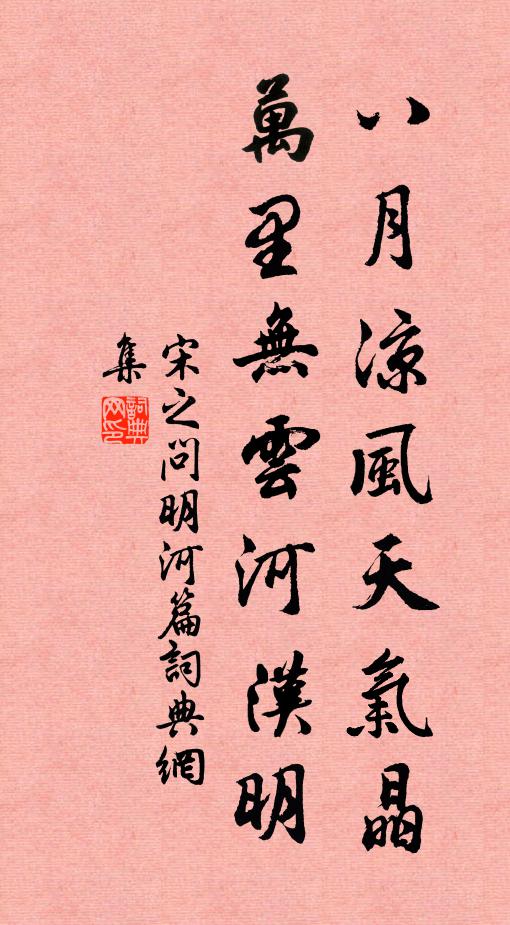 八月涼風天氣晶
萬里無雲河漢明
宋之問明河篇詞典網
集
詞典
网印